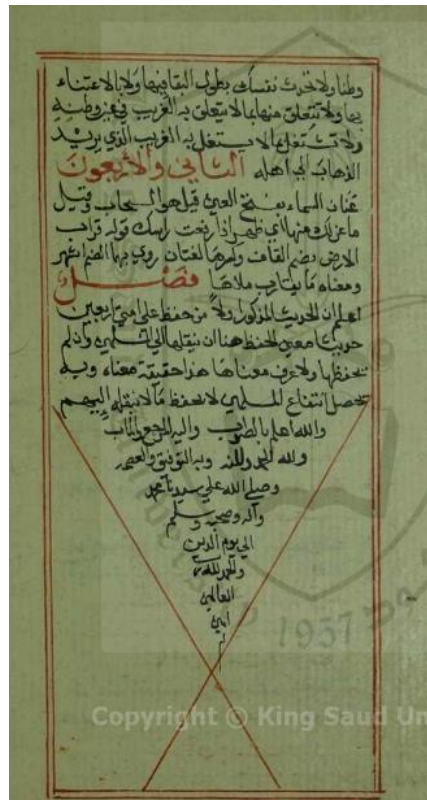 وطنا ولا تحدث نفسك بطول البقا فيها ولا بالاعتناء
بها ولا تتعلق منها بما لا يتعلق به الغريب في غير وطنه
ولا تشتغل بما لا يشتغل به الغريب الذي يريد
الذهاب الي اهله الثاني والاربعون
عنان السماء بفتح العين قيل هو السحاب وقيل
ما عن لك منها اي ظهر اذا رفعت راسك قوله قراب
الارض بضم القاف وكسرها لغتان روي بهما الضم اشهر
ومعناه ما يقارب ملاها فصل
اعلم ان الحديث المذكور اولا من حفظ علي امتي اربعين
حديثا معني الحفظ هنا ان ينقلها الي المسلمين وان لم
يحفظها ولا عرف معناها هذا حقيقة معناه وبه
يحصل انتفاع المسلمين لا بحفظ ما لا ينقله اليهم
والله اعلم بالصواب واليه المرجع والماب
ولله الحمد والمنه وبه التوفيق والعصمه
وصلي الله علي سيدنا محمد
واله وصحبه وسلم
الي يوم الدين
والحمد لله رب
العالمين
امين
1957
Copyright © King Saud Un